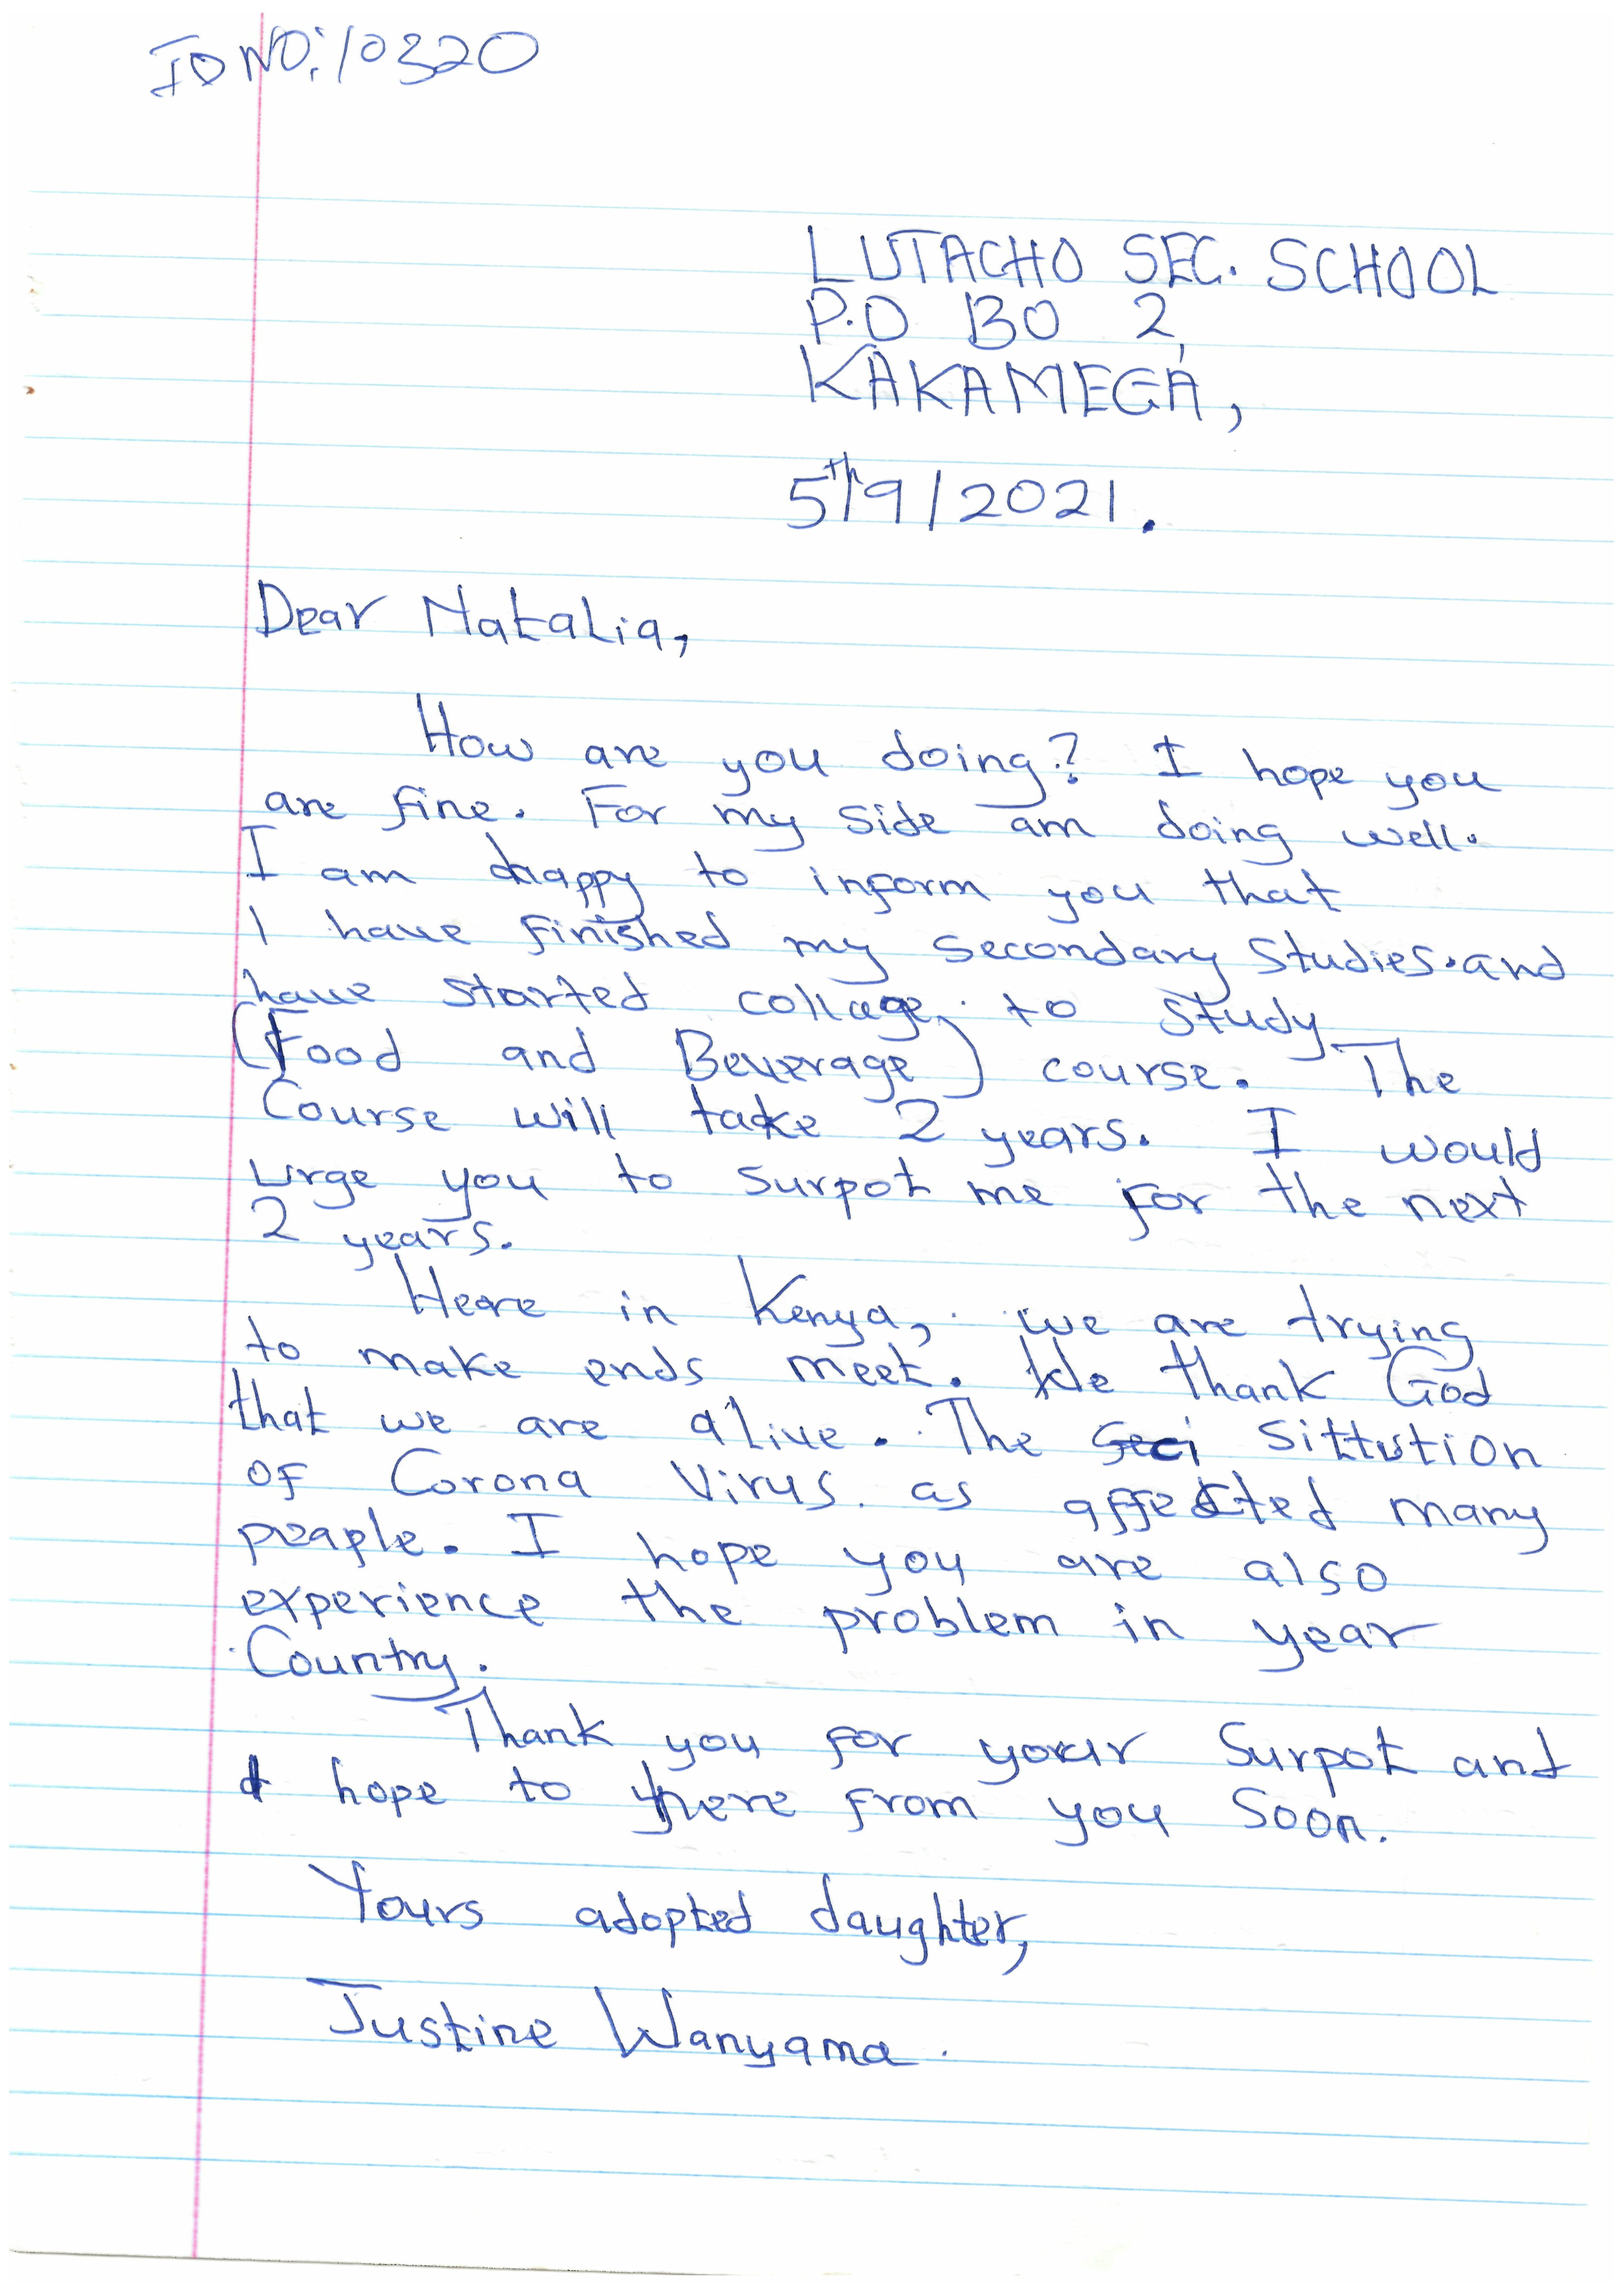 ID NO: 10320
LUTACHO SEC. SCHOOL
P.O BO 2,
KAKAMEGA,
5th/9/2021.
Dear Natalia,
How are you doing? I hope you
are fine. For my side am doing well.
I am happy to inform you that
I have finished my secondary studies.and
have started collage, to study
(Food and Beverage) course. The
Course will take 2 years. I would
urge you to surpot me for the next
2 years.
Heare in Kenya, we are trying
to make ends meet. We thank God
that we are alive. The Sittution
of Corona Virus. as affected many
peaple. I hope you are also
experience the problem in year
Country.
Thank you for your Surpot and
I hope to here from you Soon.
Yours adopted daughter,
Justine Wanyama.